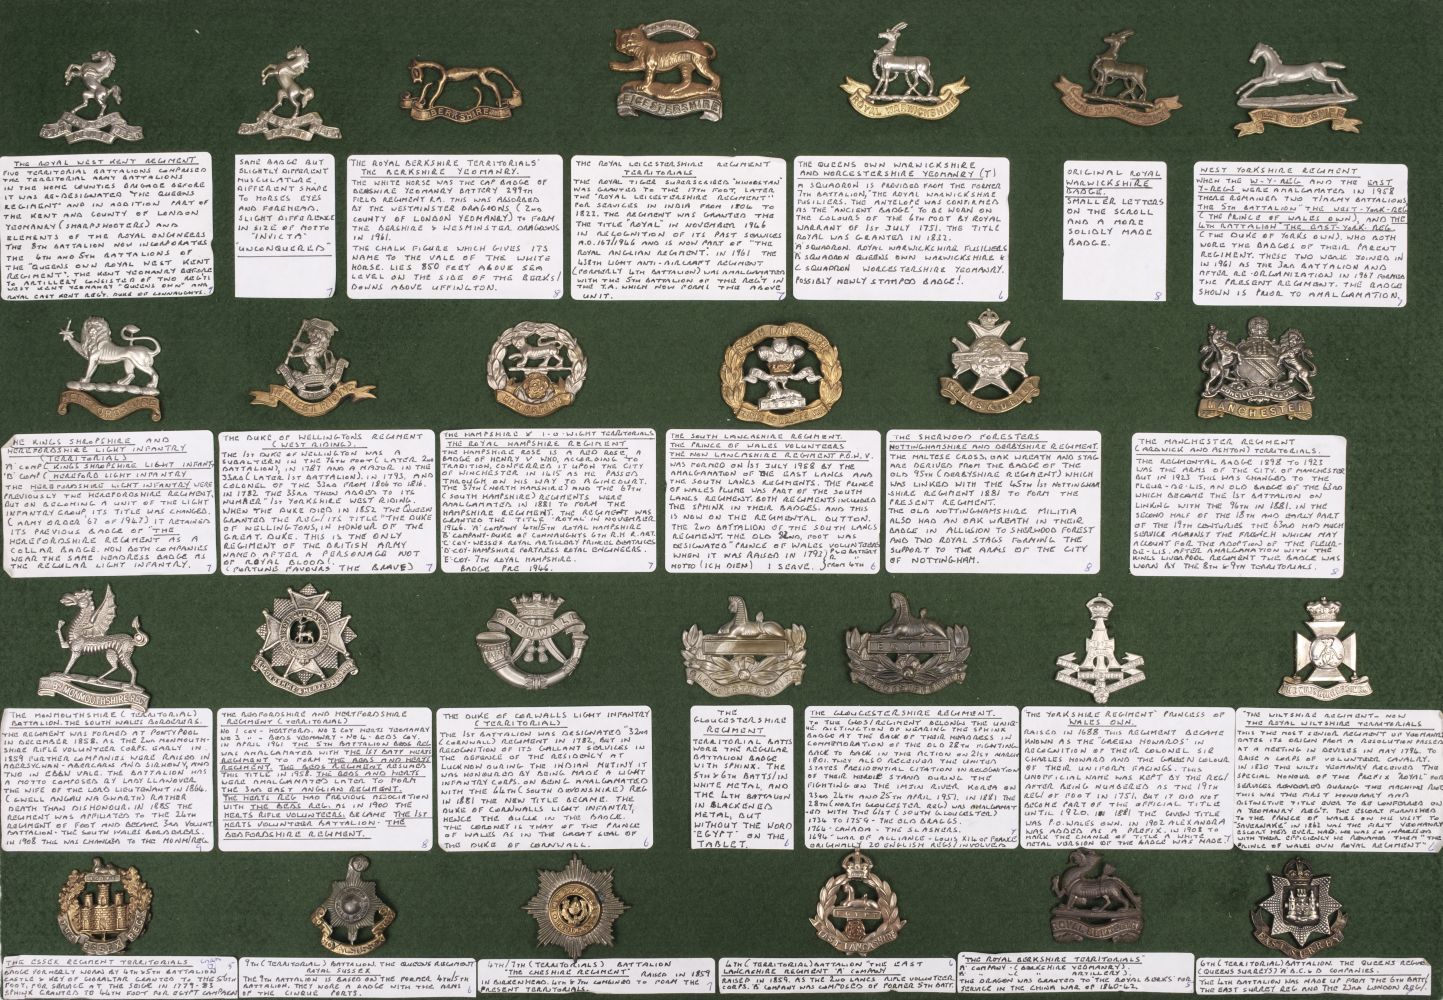 BERKSHIRE
LEICESTERSHIRE
ROYAL WARWICKSHIRE
THE ROYAL WEST KENT REGIMENT
FIVE TERRITORIAL BATTALIONS COMPRISED
THE TERRITORIAL ARMY BATTALIONS
IN THE HOME COUNTIES BRIGADE BEFORE
IT WAS RE-DESIGNATED "THE QUEENS
REGIMENT" AND IN ADDITION PART OF
THE KENT AND COUNTY OF LONDON
YEOMANRY (SHARPSHOOTERS) AND
ELEMENTS OF THE ROYAL ENGINEERS
THE 5TH BATTALION NOW INCORPORATES
THE 4TH AND 5TH BATTALIONS OF
THE "QUEENS OWN ROYAL WEST KENT
REGIMENT". THE KENT YEOMANRY BEFORE
TO ARTILLERY CONSISTED OF TWO REG'TS
WEST KENT YEOMANRY "QUEENS OWN" AND
ROYAL EAST KENT REG'T. DUKE OF CONNAUGHTS. 7
SAME BADGE BUT
SLIGHTLY DIFFERENT
MUSCULATURE,
DIFFERENT SHAPE
TO HORSES EYES
AND FOREHEAD.
SLIGHT DIFFERENCE
IN SIZE OF MOTTO
"INVICTA"
"UNCONQUERED"
7
THE ROYAL BERKSHIRE TERRITORIALS'
THE BERKSHIRE YEOMANRY.
THE WHITE HORSE WAS THE CAP BADGE OF
BERKSHIRE YEOMANRY BATTERY 299TH
FIELD REGIMENT R.A. THIS WAS ABSORBED
BY THE WESTMINSTER DRAGOONS (2ND
COUNTY OF LONDON YEOMANRY) TO FORM
THE BERSHIRE & WESMINSTER DRAGOONS
IN 1961.
THE CHALK FIGURE WHICH GIVES ITS
NAME TO THE VALE OF THE WHITE
HORSE. LIES 850 FEET ABOVE SEA
LEVEL ON THE SIDE OF THE BERKS/
DOWNS ABOVE UFFINGTON. 8
THE ROYAL LEICESTERSHIRE REGIMENT
TERRITORIALS
THE ROYAL TIGER SUPERSCRIBED 'HINDOSTAN'
WAS GRANTED TO THE 17TH FOOT, LATER
THE "ROYAL LEICESTERSHIRE REGIMENT"
FOR SERVICES IN INDIA FROM 1804 TO
1823. THE REGIMENT WAS GRANTED THE
THE TITLE "ROYAL" IN NOVEMBER 1946
IN RECOGNITION OF ITS PAST SERVICES
A.O.167/1946 AND IS NOW PART OF "THE
ROYAL ANGLIAN REGIMENT. IN 1961 THE
438TH LIGHT ANTI-AIRCRAFT REGIMENT
(FORMERLY 4TH BATTALION) WAS AMALGAMATED
WITH THE 5TH BATTALION OF THE REG'T IN
THE T.A. WHICH NOW FORMS THE ABOVE
UNIT. 7
THE QUEENS OWN WARWICKSHIRE
AND WORCESTERSHIRE YEOMANRY (T)
A SQUADRON IS PROVIDED FROM THE FORMER
7TH BATTALION, THE ROYAL WARWICKSHIRE
FUSILIERS. THE ANTELOPE WAS CONFIRMED
AS THE "ANCIENT BADGE" TO BE WORN ON
THE COLOURS OF THE 6TH FOOT BY ROYAL
WARRANT OF 1ST JULY 1751. THE TITLE
ROYAL WAS GRANTED IN 1832.
A SQUADRON ROYAL WARWICKSHIRE FUSILIERS
SQUADRON QUEENS OWN WARWICKSHIRE &
C SQUADRON WORCESTERSHIRE YEOMANRY.
POSSIBLY NEWLY STAMPED BADGE! 6
ORIGINAL ROYAL
WARWICKSHIRE
BADGE.
SMALLER LETTERS
ON THE SCROLL
AND A MORE
SOLIDLY MADE
BADGE.
8
WEST YORKSHIRE REGIMENT
WHEN THE W-Y-REG AND THE EAST
Y-REGS WERE AMALGAMATED IN 1958
THERE REMAINED TWO T/ARMY BATTALIONS,
THE 5TH BATTALION "THE WEST-YORK-REG
(THE PRINCE OF WALES OWN), AND THE
4TH BATTALION "THE EAST-YORK-REG.
(THE DUKE OF YORKS OWN). WHO BOTH
WORE THE BADGES OF THEIR PARENT
REGIMENT. THESE TWO WERE JOINED IN
IN 1961 AS THE 3RD BATTALION AND
AFTER RE-ORGANIZATION IN 1967 FORMED
THE PRESENT REGIMENT. THE BADGE
SHOWN IS PRIOR TO AMALGAMATION. 7
MANCHESTER
HE KINGS SHROPSHIRE AND
HEREFORDSHIRE LIGHT INFANTRY
(TERRITORIAL)
'A' COMP (KINGS SHROPSHIRE LIGHT INFANT
'B' COMP (HEREFORD LIGHT INFANTRY)
THE HEREFORDSHIRE LIGHT INFANTRY WERE
PREVIOUSLY THE HEREFORDSHIRE REGIMENT,
BUT ON BECOMING A UNIT OF THE LIGHT
INFANTRY GROUP ITS TITLE WAS CHANGED.
(ARMY ORDER 67 OF 1947) IT RETAINED
ITS PREVIOUS BADGE OF "THE
HEREFORDSHIRE REGIMENT AS A
COLLAR BADGE. NOW BOTH COMPANIES
WEAR THE SAME HEADDRESS BADGE AS
THE REGULAR LIGHT INFANTRY. 7
THE DUKE OF WELLINGTONS REGIMENT
(WEST RIDING).
THE 1ST DUKE OF WELLINGTON WAS A
SUBALTERN IN THE 76TH FOOT (LATER 2ND
BATTALION), IN 1787 AND A MAJOR IN THE
33RD (LATER 1ST BATTALION). IN 1793, AND
COLONEL OF THE 33RD FROM 1806 TO 1816.
IN 1782 THE 33RD THEN ADDED TO ITS
NUMBER "1ST YORKSHIRE WEST RIDING.
WHEN THE DUKE DIED IN 1852 THE QUEEN
GRANTED THE REG/ITS TITLE "THE DUKE
OF WELLINGTONS, IN HONOUR OF THE
GREAT DUKE. THIS IS THE ONLY
REGIMENT OF THE BRITISH ARMY
NAMED AFTER A PERSONAGE NOT
OF ROYAL BLOOD!
(FORTUNE FAVOURS THE BRAVE) 7
THE HAMPSHIRE & I-O-WIGHT TERRITORIALS
THE ROYAL HAMPSHIRE REGIMENT
THE HAMPSHIRE ROSE IS A RED ROSE, A
BADGE OF HENRY V WHO, ACCORDING TO
TRADITION, CONFERRED IT UPON THE CITY
OF WINCHESTER IN 1415 AS HE PASSED
THROUGH ON HIS WAY TO AGINCOURT.
THE 37TH (NORTH HAMPSHIRE) AND THE 67TH
(SOUTH HAMPSHIRE) REGIMENTS WERE
AMALGAMATED IN 1881 TO FORM THE
HAMPSHIRE REGIMENT. THE REGIMENT WAS
GRANTED THE TITLE 'ROYAL' IN NOVEMBER
1946. 'A' COMPANY 4TH/5TH ROYAL HAMPSHIRE
'B' COMPANY-DUKE OF CONNAUGHTS 6TH R.H R.ART.
'C' COY-WESSEX ROYAL ARTILLERY PRINCESS BEATRICES
'D' COY-HAMPSHIRE FORTRESS ROYAL ENGINEERS.
'E' COY. 7TH ROYAL HAMPSHIRE.
BADGE PRE 1946. 7
THE SOUTH LANCASHIRE REGIMENT.
THE PRINCE OF WALES VOLUNTEERS
THE NOW LANCASHIRE REGIMENT P.O.W.V.
WAS FORMED ON 1ST JULY 1958 BY THE
AMALGAMATION OF THE EAST LANCS AND
THE SOUTH LANCS REGIMENTS. THE PRINCE
OF WALES PLUME WAS PART OF THE SOUTH
LANCS REGIMENT. BOTH REGIMENTS INCLUDED
THE SPHINX IN THEIR BADGES. AND THIS
IS NOW ON THE REGIMENTAL BUTTON.
THE 2ND BATTALION OF THE SOUTH LANCS
REGIMENT. THE OLD 82ND, FOOT WAS
DESIGNATED "PRINCE OF WALES VOLUNTEERS
WHEN IT WAS RAISED IN 1793
MOTTO (ICH DIEN) I SERVE. 6
THE SHERWOOD FORESTERS
NOTTINGHAMSHIRE AND DERBYSHIRE REGIMENT.
THE MALTESE CROSS, OAK WREATH AND STAG
ARE DERIVED FROM THE BADGE OF THE
OLD 95TH (DERBYSHIRE REGIMENT) WHICH
WAS LINKED WITH THE 45TH 1ST NOTTINGHAM
-SHIRE REGIMENT 1881 TO FORM THE
PRESENT REGIMENT.
THE OLD NOTTINGHAMSHIRE MILITIA
ALSO HAD AN OAK WREATH IN THEIR
BADGE IN ALLUSION TO SHERWOOD FOREST
AND TWO ROYAL STAGS FORMING THE
SUPPORT TO THE ARMS OF THE CITY
OF NOTTINGHAM. 8
THE MANCHESTER REGIMENT
(ARDWICK AND ASHTON) TERRITORIALS.
THE REGIMENTAL BADGE 1898 TO 1923
WAS THE ARMS OF THE CITY OF MANCHESTER
BUT IN 1923 THIS WAS CHANGED TO THE
FLEUR-DE-LIS, AN OLD BADGE OF THE 63RD
WHICH BECAME THE 1ST BATTALION ON
LINKING WITH THE 96TH IN 1881. IN THE
SECOND HALF OF THE 18TH AND EARLY PART
OF THE 19TH CENTURIES THE 63RD HAD MUCH
SERVICE AGAINST THE FRENCH WHICH MAY
ACCOUNT FOR THE ADOPTION OF THE FLEUR-
DE-LIS. AFTER AMALGAMATION WITH THE
KINGS LIVERPOOL REGIMENT THE BADGE WAS
WORN BY THE 8TH & 9TH TERRITORIALS. 8
CORNWALL
EGYPT
THE MONMOUTHSHIRE (TERRITORIAL)
BATTALION. THE SOUTH WALES BORDERERS.
THE REGIMENT WAS FORMED AT PONTYPOOL
IN DECEMBER 1858. AS THE 2ND MONMOUTH-
SHIRE RIFLE VOLUNTEER CORPS. EARLY IN
1859 FURTHER COMPANIES WERE RAISED IN
ABERSYCHAN-ABERCARN AND SIRHOWY, AND
TWO IN EBBW VALE. THE BATTALION HAS
A MOTTO COMPOSED BY LADY LLANOVER
THE WIFE OF THE LORD LIEUTENANT IN 1864.
(GWELL ANGAU NA GWARTH) RATHER
DEATH THAN DISHONOUR. IN 1885 THE
REGIMENT WAS AFFILIATED TO THE 24TH
REGIMENT OF FOOT AND BECAME 3RD VOLUNT
BATTALION-THE SOUTH WALES BORDERERS.
IN 1908 THIS WAS CHANGED TO THE MONM/REG.
9
THE BEDFORDSHIRE AND HERTFORDSHIRE
REGIMENT (TERRITORIAL)
NO 1 COY-HERTFORD. NO 2 COY HERTS YEOMANRY
NO 3 -- BEDS YEOMANRY-NO 4-BEDS COY.
IN APRIL 1961 THE 5TH BATTALION BEDS REG
WAS AMALGAMATED WITH THE 1ST BATT HERTS
REGIMENT TO FORM THE BEDS AND HERTS
REGIMENT. THE BEDS REGIMENT RESUMED
THIS TITLE IN 1958. THE BEDS AND HERTS
WERE AMALGAMATED LATER TO FORM
THE 3RD EAST ANGLIAN REGIMENT.
THE HERTS REG HAD PREVIOUS ASSOCIATION
WITH THE BEDS REG. AS IN 1900 THE
HERTS RIFLE VOLUNTEERS, BECAME THE 1ST
HERTS VOLUNTEER BATTALION-THE
BEDFORDSHIRE REGIMENT. 8
THE DUKE OF CORWALLS LIGHT INFANTRY
(TERRITORIAL)
THE 1ST BATTALION WAS DESIGNATED "32ND
(CORNWALL) REGIMENT IN 1782, BUT IN
RECOGNITION OF ITS GALLANT SERVICES IN
THE DEFENCE OF THE RESIDENCY AT
LUCKNOW DURING THE INDIAN MUTINY IT
WAS HONOURED BY BEING MADE A LIGHT
INFANTRY CORPS. ON BEING AMALGAMATED
WITH THE 46TH (SOUTH DEVONSHIRE) REG
IN 1881 THE NEW TITLE BECAME. THE
DUKE OF CORNWALLS LIGHT INFANTRY,
HENCE THE BUGLE IN THE BADGE.
THE CORONET IS THAT OF THE PRINCE
OF WALES AS IN THE GREAT SEAL OF
THE DUKE OF CORNWALL. 6
THE
GLOUCESTERSHIR
REGIMENT
TERRITORIAL BATTS
WORE THE REGULAR
BATTALION BADGE
WITH SPHINX. THE
5TH & 6TH BATTS/IN
WHITE METAL AND
THE 4TH BATTALION
IN BLACKENED
METAL, BUT
WITHOUT THE WORD
'EGYPT' ON THE
TABLET. 6
THE GLOUCESTERSHIRE REGIMENT.
TO THE GLOS/REGIMENT BELONGS THE UNIQUE
DISTINCTION OF WEARING THE SPHINX
BADGE AT THE BACK OF THEIR HEADDRESS IN
COMMEMORATION OF THE OLD 28TH FIGHTING
BACK TO BACK IN THE ACTION ON 21ST MARCH
1801. THEY ALSO RECEIVED THE UNITED
STATES PRESIDENTIAL CITATION IN RECOGNITION
OF THEIR HEROIC STAND DURING THE
FIGHTING ON THE IMJIN RIVER KOREA ON
23RD 24TH AND 25TH APRIL 1951. IN 1881 THE
28TH (NORTH GLOUCESTER REG) WAS AMALGAMAT
-ED WITH THE 61ST (SOUTH GLOUCESTER)
1734 TO 1759-THE OLD BRAGGS.
1764-CANADA-THE SLASHERS.
1694-WAR OF ALLIANCE-LOUIS XIV OF FRANCE
ORIGINALLY 20 ENGLISH REGS/INVOLVED
THE YORKSHIRE REGIMENT PRINCESS OF
WALES OWN.
RAISED IN 1688 THIS REGIMENT BECAME
KNOWN AS THE "GREEN HOWARDS" IN
RECOGNITION OF THEIR COLONEL SIR
CHARLES HOWARD AND THE GREEN COLOUR
OF THEIR UNIFORM FACINGS. THIS
UNOFFICIAL NAME WAS KEPT BY THE REG/
AFTER BEING NUMBERED AS THE 19TH
REG/ OF FOOT IN 1751, BUT IT DID NOT
BECOME PART OF THE OFFICIAL TITLE
UNTIL 1920. IN 1881 THE GIVEN TITLE
WAS P.O WALES OWN. IN 1902 ALEXANDRA
WAS ADDED AS A PREFIX. IN 1908 TO
MARK THE CHANGE OF TITLE A WHITE
METAL VERSION OF THE BADGE WAS MADE. 7
THE WILTSHIRE REGIMENT-NOW
THE ROYAL WILTSHIRE TERRITORIALS
THIS THE MOST SENIOR REGIMENT OF YEOMANRY
DATES ITS ORIGIN FROM A RESOLUTION PASSED
AT A MEETING IN DEVIZES IN MAY 1794 TO
RAISE A CORPS OF VOLUNTEER CAVALRY.
IN 1830 THE WILTS YEOMANRY RECEIVED THE
SPECIAL HONOUR OF THE PREFIX 'ROYAL' FOR
SERVICES RENDERED DURING THE MACHINE RIOTS
THIS WAS THE FIRST HONORARY AND
DISTINCTIVE TITLE EVER TO BE CONFERRED ON
A YEOMANRY REG'T. THE ESCORT FURNISHED
TO THE PRINCE OF WALES ON HIS VISIT TO
"SAVERNAKE" IN 1863 WAS THE FIRST YEOMANRY
ESCORT HE'D EVER HAD. HE WAS SO IMPRESSED
WITH THEIR EFFICIENCY HE RENAMED THEM "THE
PRINCE OF WALES OWN ROYAL REGIMENT" 6
THE ESSEX REGIMENT TERRITORIALS
BADGE FORMERLY WORN BY 4TH & 5TH BATTALION
CASTLE & KEY OF GIBRALTAR GRANTED TO THE 56TH
FOOT, FOR SERVICE AT THE SEIGE IN 1779-83
SPHINX GRANTED TO 44TH FOOT FOR EGYPT CAMPAIGN
9TH (TERRITORIAL) BATTALION. THE QUEENS REGIMENT
ROYAL SUSSEX
THE 9TH BATTALION IS BASED ON THE FORMER 4TH/5TH
BATTALION. THEY WORE A BADGE WITH THE ARMS
OF THE CINQUE PORTS. 6
4TH/7TH (TERRITORIALS) BATTALION
"THE CHESHIRE REGIMENT" RAISED IN 1859
IN BIRKENHEAD. 4TH & 7TH COMBINED TO FORM THE
PRESENT TERRITORIALS. 7
4TH (TERRITORIAL) BATTALION "THE EAST
LANCASHIRE REGIMENT 'A' COMPANY
RAISED IN 1859. AS THE 2ND LANCS RIFLE VOLUNTEER
CORPS. 'B' COMPANY WAS COMPOSED OF FORMER 5TH BATT.
"THE ROYAL BERKSHIRE TERRITORIALS"
A' COMPANY-(BERKSHIRE YEOMANRY).
ARTILLERY).
THE DRAGON WAS GRANTED TO THE 'ROYAL BERKS' FOR
SERVICE IN THE CHINA WAR OF 1840-42. 5
6TH (TERRITORIAL) BATTALION. THE QUEENS REGIME
(QUEENS SURREYS) A.B.C & D COMPANIES.
THE 4TH BATTALION WAS MADE UP FROM THE 6TH BATT/
THE EAST SURREY REG AND THE 23RD LONDON REG/